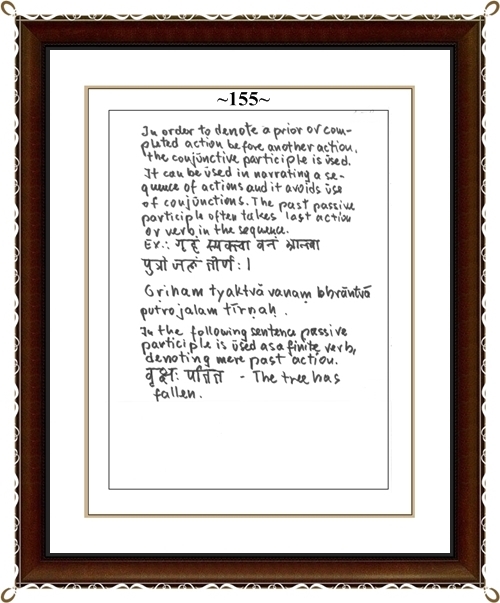 ~155~
In order to denote a prior or com-
pleted action before another action,
the conjunctive participle is used.
It can be used in narrating a se-
quence of actions and it avoids use
of conjunctions. The past passive
participle often takes last action
or verb in the sequence.
Ex.: गृहं त्यक्त्वा वनं भ्रान्त्वा
पुत्रो जलं तीर्णः।
Gṛiham tyaktvā vanaṃ bhrāntvā
putro jalam tīrṇaḥ.
In the following sentence passive
participle is used as a finite verb,
denoting mere past action.
वृक्षः - The tree has
fallen.